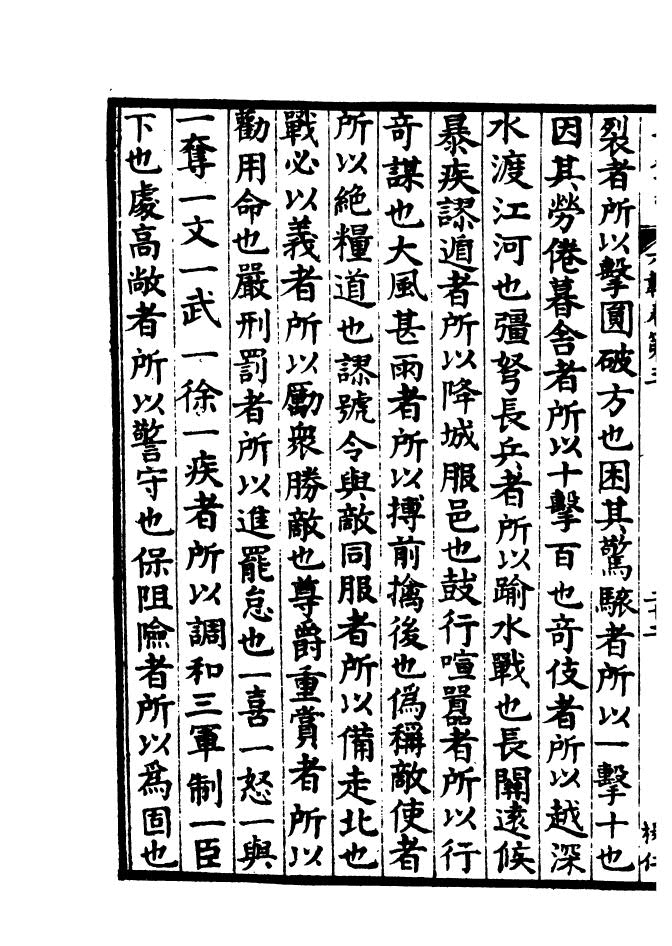 六韜卷第三
二十二
裂者所以擊圓破方也因其驚駭者所以一擊十也
因其勞倦暮舍者所以十擊百也奇伎者所以越深
水渡江河也彊弩長兵者所以踰水戰也長關遠候
暴疾謬遁者所以降城服邑也鼓行喧囂者所以行
奇謀也大風甚雨者所以搏前擒後也偽稱敵使者
所以絶糧道也謬號令與敵同服者所以備走北也
戰必以義者所以勵衆勝敵也尊爵重賞者所以
勸用命也嚴刑罰者所以進罷怠也一喜一怒一與
一奪一文一武一徐一疾者所以調和三軍制一臣
下也處高敞者所以警守也保阻險者所以爲固也